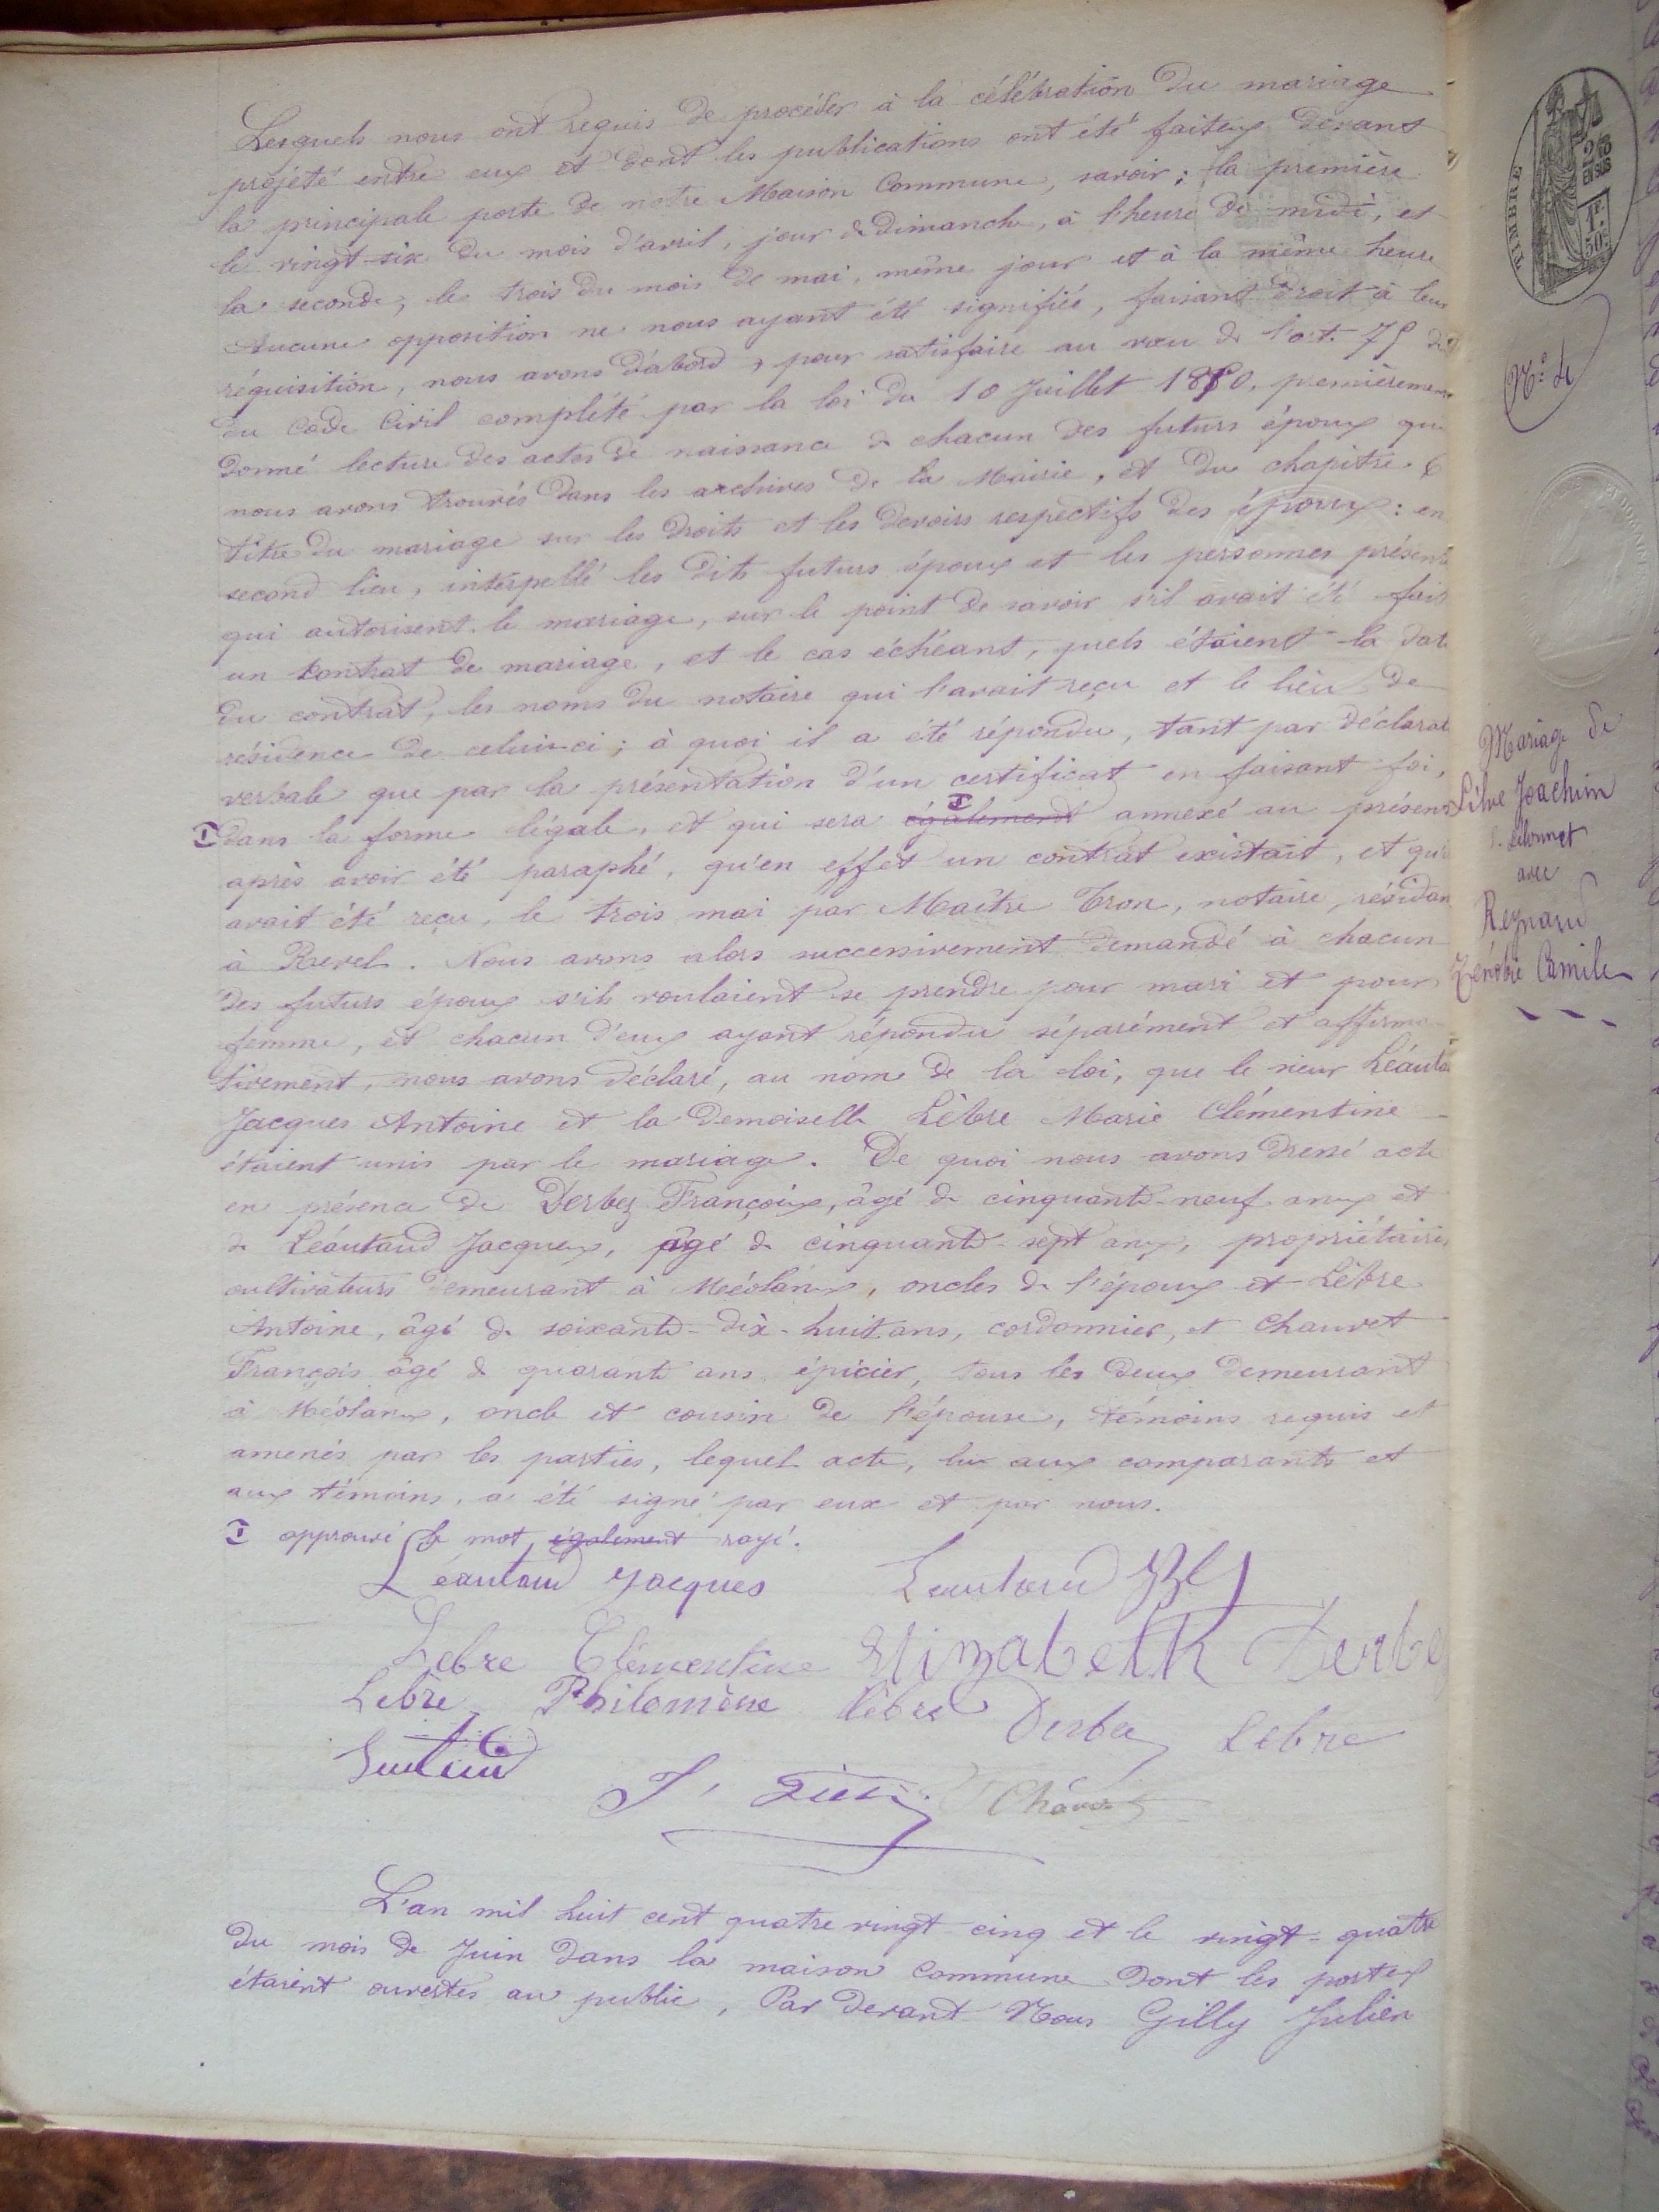 Lesquels nous ont requis de procéder à la célébration du mariage
projété entre eux et dont les publications ont été faites devant
la principale porte de notre Maison Commune, savoir : la première
le vingt-six du mois d'avril, jour de dimanche, à l'heure de midi, et
la seconde, le trois du mois de mai, même jour et à la même heure
Aucune opposition ne nous ayant été signifiée, faisant droit à leur
réquisition, nous avons d'abord, pour satisfaire au vœu de l'art. 75
du Code Civil complété par la loi du 10 Juillet 1850, premièrement
donné lecture des actes de naissance de chacun des futurs époux que
nous avons trouvés dans les archives de la Mairie, et du chapitre 6
titre du mariage sur les droits et les devoirs respectifs des époux : en
second lieu, interpellé les dits futurs époux et les personnes présentes
qui autorisent le mariage, sur le point de savoir s'il avait été fait
un contrat de mariage, et le cas échéant, quels étaient la date
du contrat, les noms du notaire qui l'avait reçu et le lieu de
résidence de celui-ci ; à quoi il a été répondu, tant par déclarat
verbale que par la présentation d'un certificat en faisant foi,
dans la forme légale, et qui sera également annexé au présent
après avoir été paraphé, qu'en effet un contrat existait, et qu'il
avait été reçu, le trois mai par Maître Tron, notaire, résidant
à Revel. Nous avons alors successivement demandé à chacun
des futurs époux s'ils voulaient se prendre pour mari et pour
femme, et chacun d'eux ayant répondu séparément et affirma-
tivement, nous avons déclaré, au nom de la loi, que le sieur Léautaud
Jacques Antoine et la demoiselle Lèbre Marie Clémentine
étaient unis par le mariage. De quoi nous avons dressé acte
en présence de Derbez François, âgé de cinquante-neuf ans et
de Léautaud Jacques, âgé de cinquante-sept ans, propriétaires
cultivateurs demeurant à Méolans, oncles de l'époux et Lèbre
Antoine, âgé de soixante-dix-huit ans, cordonnier, et Chauvet
François âgé de quarante ans épicier, tous les deux demeurant
à Méolans, oncle et cousin de l'épouse, témoins requis et
amenés par les parties, lequel acte, lu aux comparants et
aux témoins, a été signé par eux et par nous.
approuvé le mot également rayé.
Léautaud Jacques Léautaud
Lebre Clémentine Elizabeth Derbe
Lebre Philomène Lèbre Derbez Lebre
L'an mil huit cent quatre vingt cinq et le vingt-quatre
du mois de Juin dans la maison Commune dont les portes
étaient ouvertes au public, Par devant Nous Gilly Julien
TIMBRE
2/10
EN SUS
1F
50c
N°: 4
Mariage de
Lèbre Joachim
avec
Reynaud
Zénobie Camile